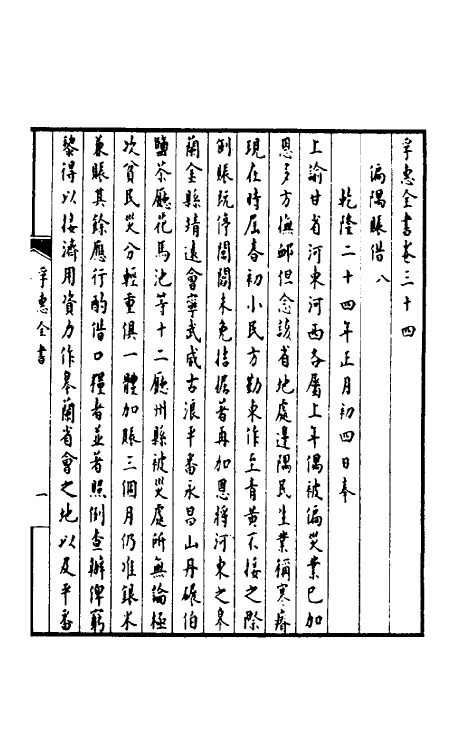 孚惠全書卷三十四
偏隅賬借八
乾隆二十四年正月初四日奉
上諭甘省河東河西各屬上年偶被偏災業已加
恩多方撫䘏但念該省地處邊隅民生業稱寒瘠
現在時屆春初小民方勤東作至青黄不接之際
例賬既停閭閻未免拮据著再加恩將河東之皋
蘭金縣靖遠會寧武威古浪平番永昌山丹碾伯
鹽茶廳花馬池等十二廳州縣被災處所無論極
次貧民災分輕重俱一體加賬三個月仍准銀米
兼賬其餘應行酌借口糧者並著照例查辦俾窮
黎得以接濟用資力作皋蘭省會之地以及平番
孚惠全書
一